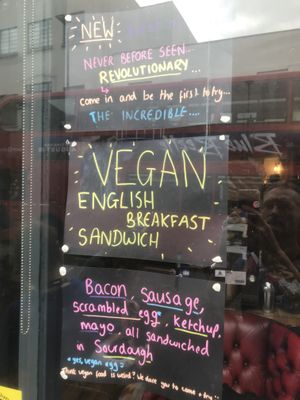 NEW
NEVER BEFORE SEEN...
REVOLUTIONARY...
come in and be the first to try...
THE INCREDIBLE....
VEGAN
ENGLISH
BREAKFAST
SANDWICH
Bacon, Sausage,
scrambled egg*, Ketchup,
mayo, all sandwiched
in Sourdough
*yes, vegan egg
Think vegan food is weird? We dare you to come & try